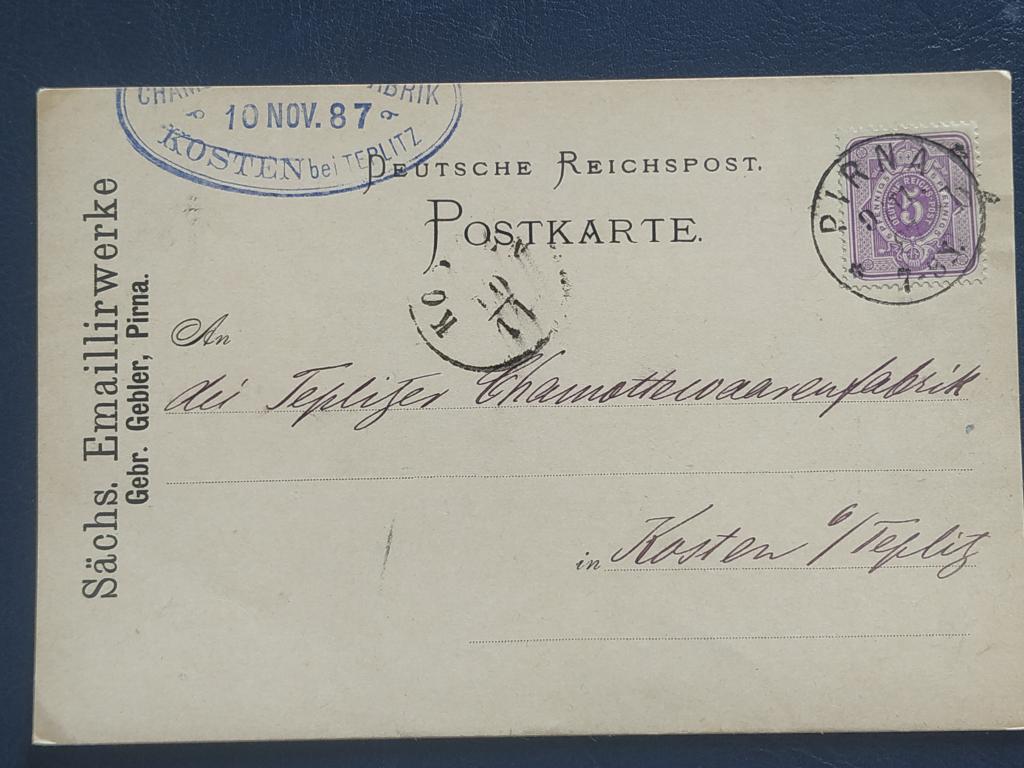 10 NOV. 87
KOSTEN bei TEPLITZ
DEUTSCHE REICHSPOST.
POSTKARTE.
PIRNA
5
Sächs. Emaillirwerke
Gebr. Gebler, Pirna.
KO
10
11
An
dieTeplitzer Chamottewaarenfabrik
in Kosten b/Teplitz